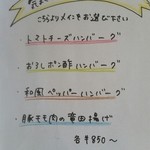 こちらよりメインをお選び下さい
・トマトチーズハンバーグ
・おろしポン酢ハンバーグ
・和風ペッパーハンバーグ
・豚モモ肉の竜田揚げ
各￥850〜